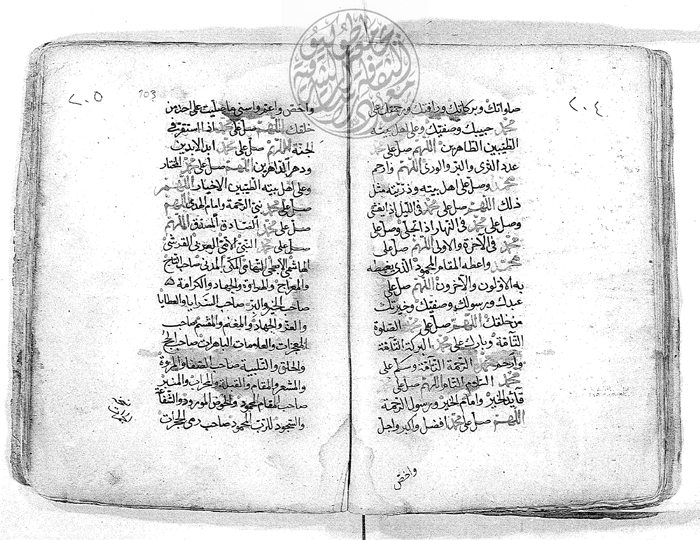 ٢٠٤
صلواتك وبركاتك ورأفتك ورحمتك على
محمد حبيبك وصفيك وعلى اهل بيته
الطيبين الطاهرين اللهم صل على محمد
عدد الثرى والبر والورى اللهم وارحم
محمد وصل على اهل بيته وذريته مثل
ذلك اللهم صل على محمد في الليل اذا يغشى
وصل على محمد في النهار اذا تجلى وصل على
محمد في الآخرة والاولى اللهم صل على
محمد واعطه المقام المحمود الذي يغبطه
به الاولون والآخرون اللهم صل على
عبدك ورسولك وصفيك وخيرتك
من خلقك اللهم صل على محمد الصلوة
التامة وبارك على محمد البركة التامة
وارحم محمد الرحمة التامة وسلم على
محمد السلام التام اللهم صل على
قايد الخير وامام الخير ورسول الرحمة
اللهم صل على محمد افضل واكبر واجل
واخص
٢٠٥
103
واخص واعم واسنى ما صليت على احد من
خلقك اللهم صل على محمد اذا استقر في
الجنة اللهم صل على محمد ابد الابدين
ودهر الداهرين اللهم صل على محمد المختار
وعلى اهل بيته الطيبين الاخيار اللهم
صل على محمد نبي الرحمة وامام الهدى اللهم
صل على محمد
صل على محمد النبي الامي العربي القرشي
الهاشمي الابطحي التهامي المكي المدني صاحب التاج
والمعراج والهراوة والجهاد والكرامة
صاحب الخير والبر صاحب السرايا والعطايا
والغزو والجهاد والمغنم والمقسم صاحب
المعجزات والعلامات الباهرات صاحب الحج
والحلق والتلبية صاحب الصفا والمروة
والمشعر والمقام والقبلة والمحراب والمنبر
صاحب المقام المحمود والحوض المورود والشفاعة
والسجود للرب المحمود صاحب رمي الجمرات